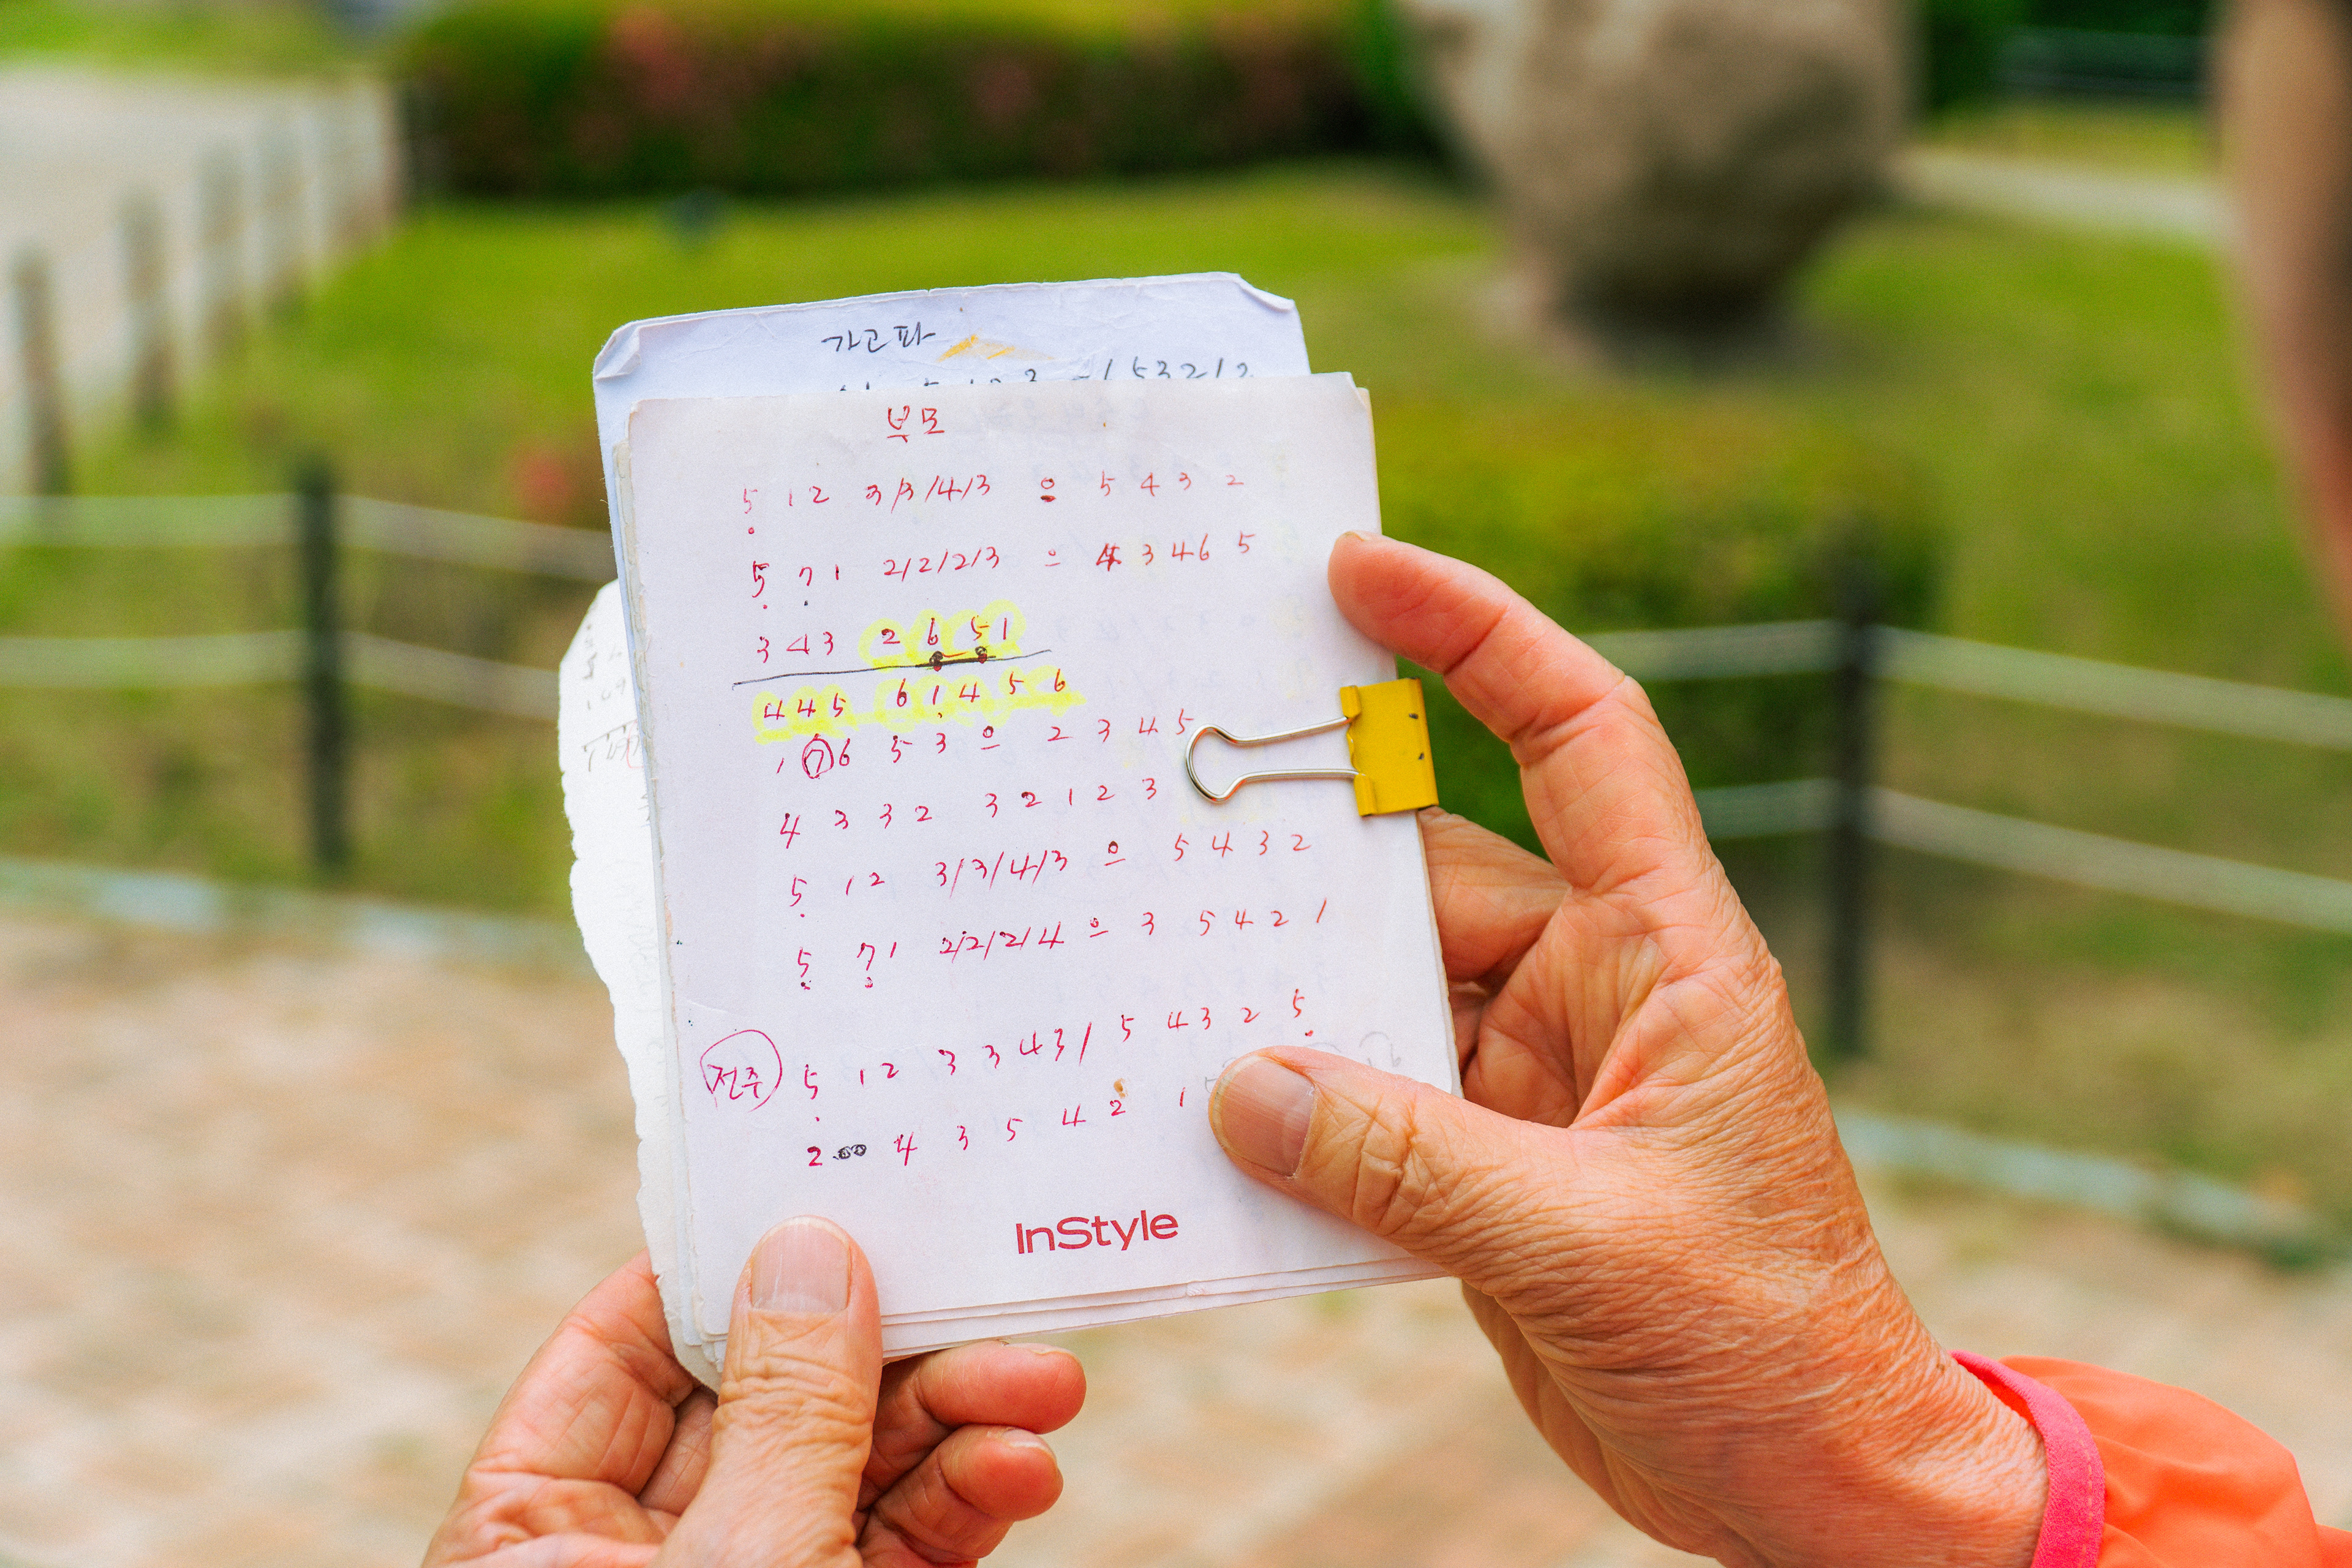 가고파
53212
부모
5 1 2 3/3/4/3 0 5 4 3 2
5 7 1 2/2/2/3 0 4 3 4 6 5
3 4 3 2 6 5 1
4 4 5 6 1 4 5 6
1 7 6 5 3 0 2 3 4 5
4 3 3 2 3 2 1 2 3
5 1 2 3/3/4/3 0 5 4 3 2
5 7 1 2/2/2/4 0 3 5 4 2 1
전주 5 1 2 3 3 4 3 / 5 4 3 2 5
2 4 3 5 4 2 1
InStyle